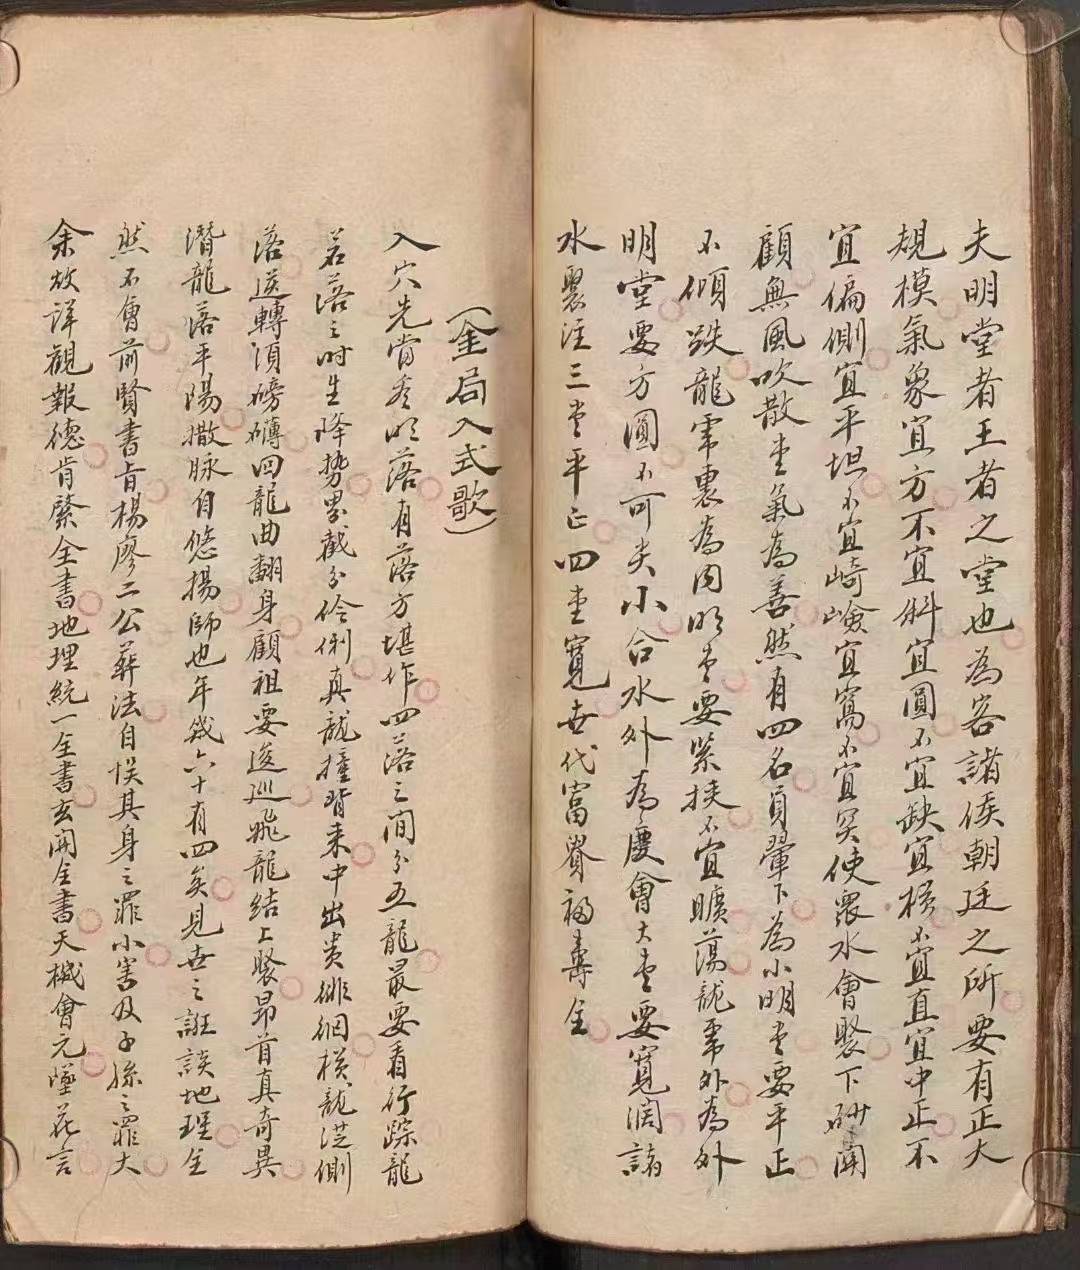 夫明堂者王者之堂也為客諸侯朝廷之所要有正大
規模氣象宜方不宜斜宜圓不宜缺宜横不宜直宜中正不
宜偏側宜平坦不宜崎嶮宜窩不宜突使衆水會聚下砂開
顧無風吹散堂氣為善然有四名員暈下為小明堂要平正
不傾跌龍虎裏為内明堂要紧挟不宜曠蕩龍虎外為外
明堂要方圓不可尖小合水外為慶會大堂要寬濶諸
水聚注三堂平正四堂寬世代富貴福壽全
(金局入式歌)
入穴先當看明落有落方堪作四落之间分五龍最要看行踪龍
若落之时生降势界截分伶俐真龍撞背来中出贵徘徊横龍從側
落送轉須磅礴回龍曲翻身顧祖要逡巡飛龍結上聚昂首真奇異
潛龍落平陽撒脉自悠揚師也年幾六十有四矣見世之誑談地理全
然不會前賢書旨楊廖二公葬法自悞其身之罪小害及子孫之罪大
余故详觀報德肯綮全書地理統一全書玄開全書天機會元墜花言